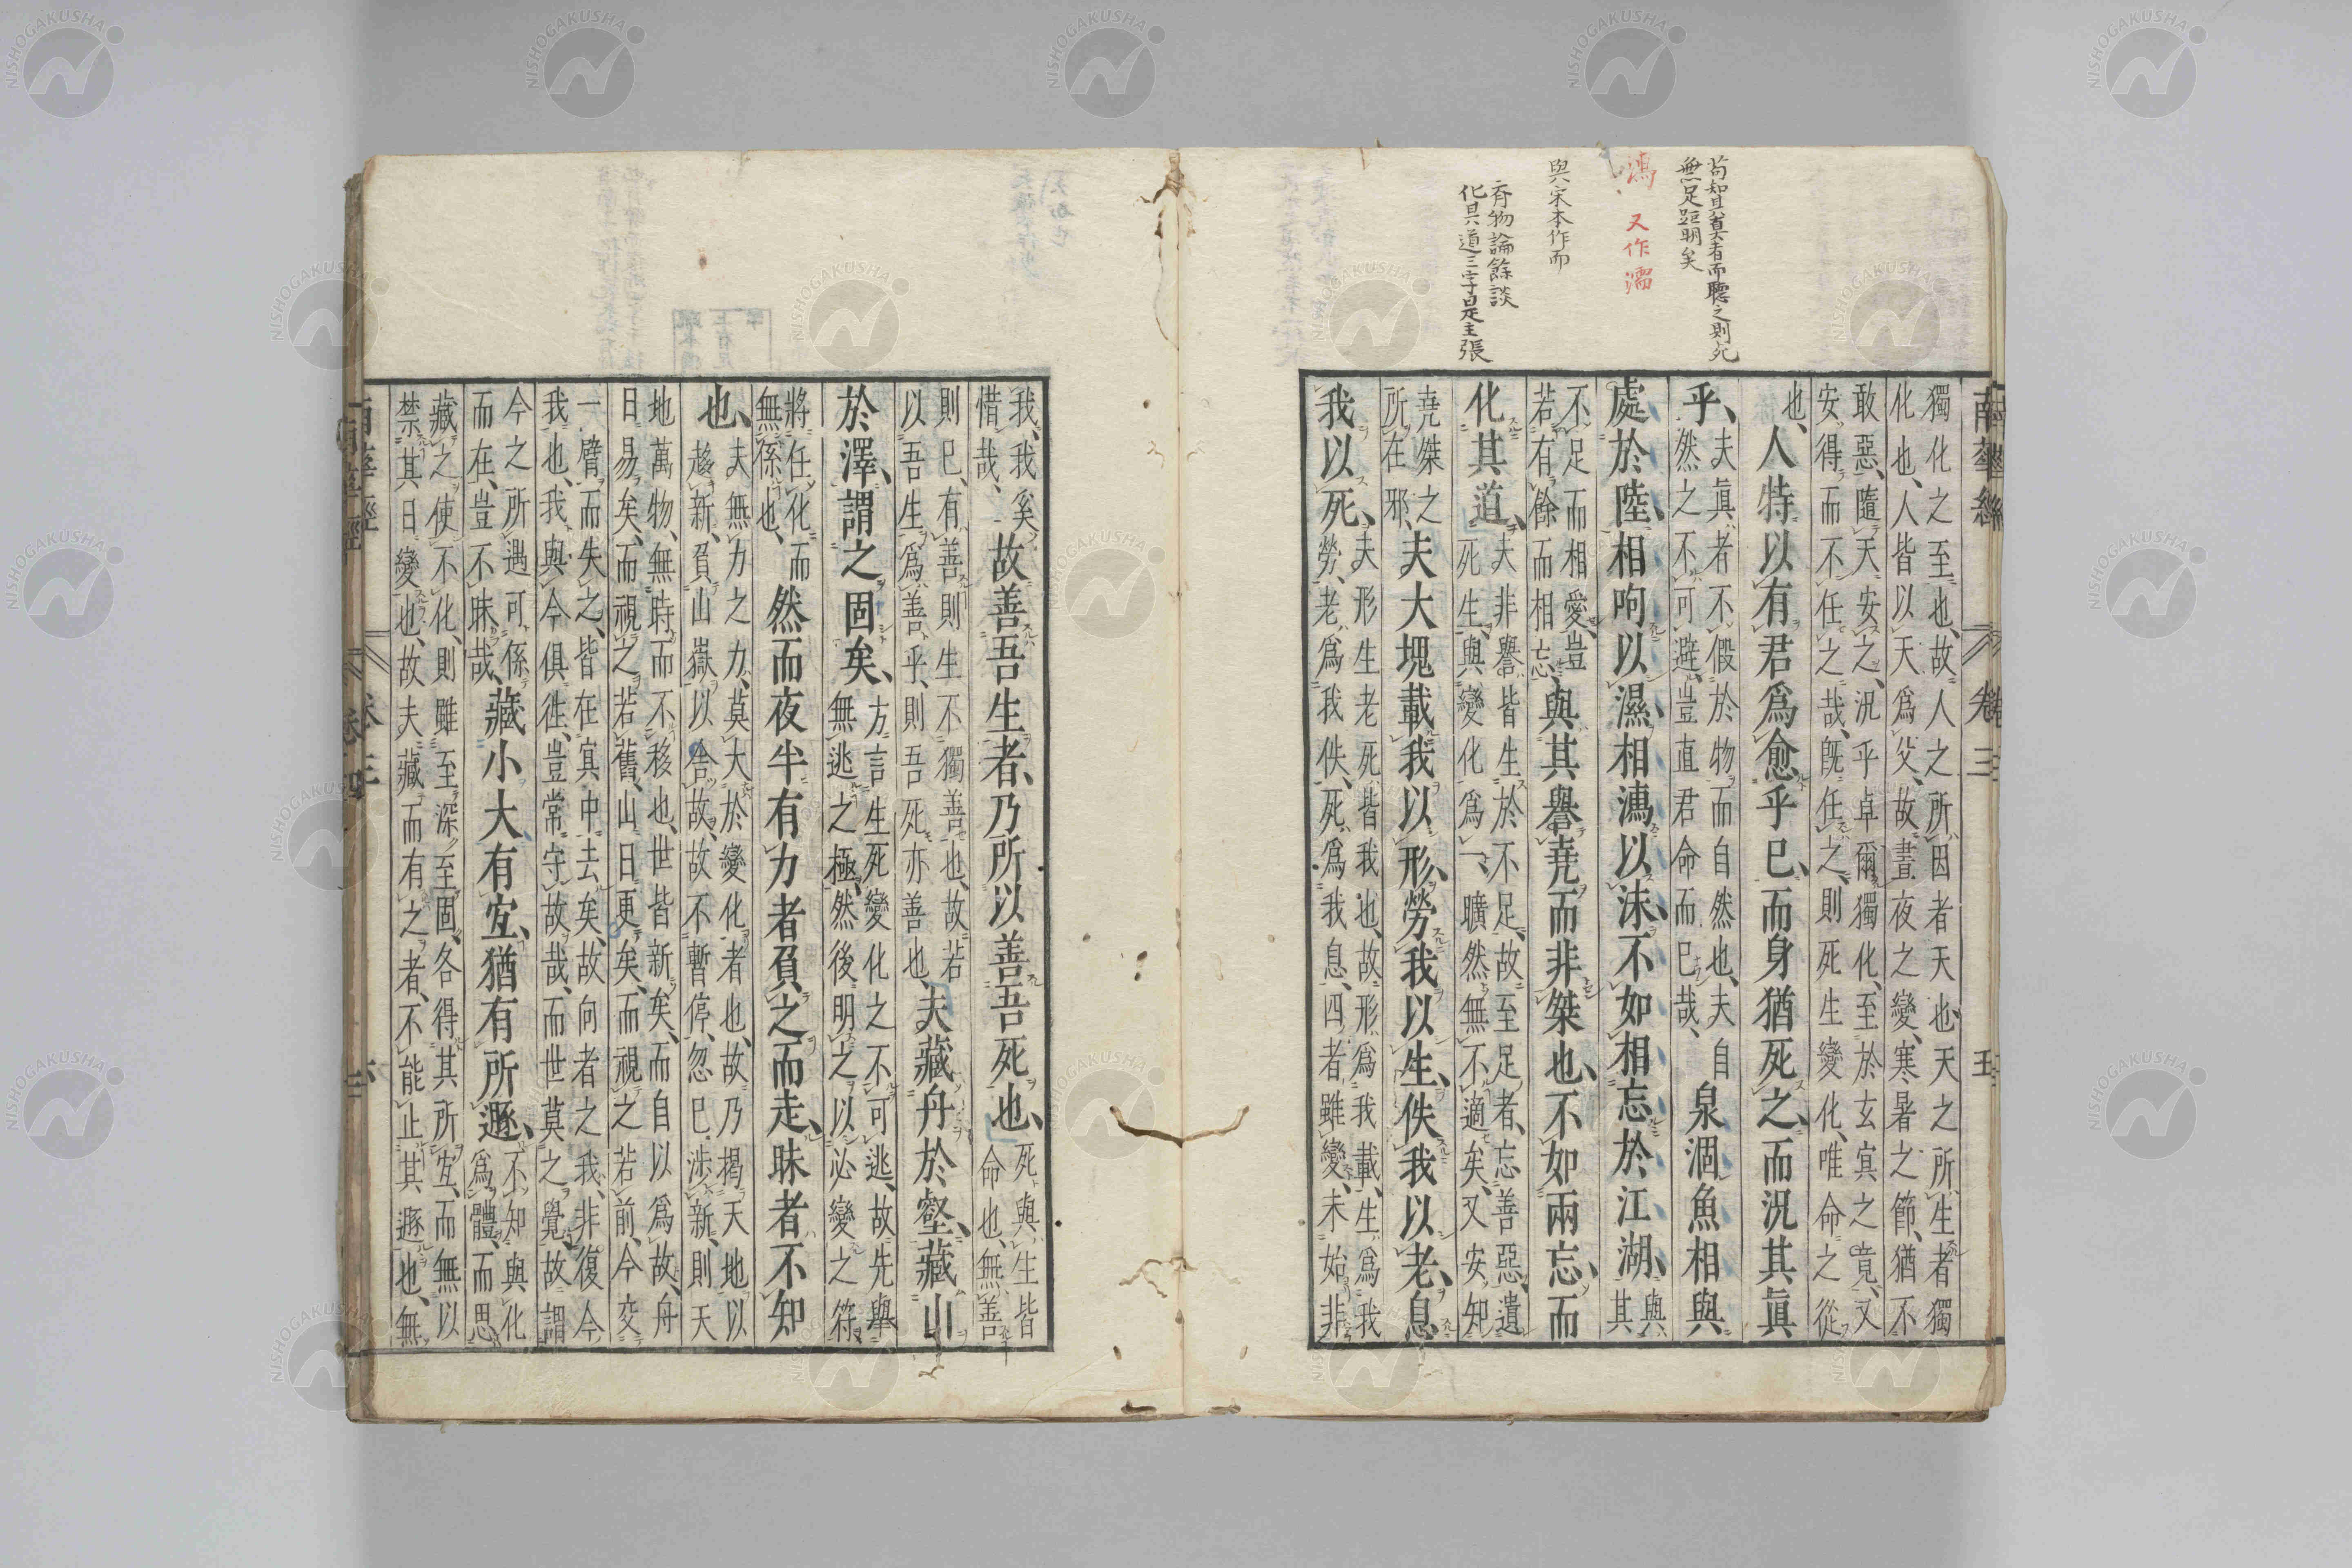 苟知其眞者而聽之則死
無足距明矣
又作濡
與宋本作而
齊物論餘談
化其道三字是主張
南華經 卷三 五
獨化之至也、故人之所因者天也、天之所生者獨
化也、人皆以天爲父、故晝夜之變、寒暑之節、猶不
敢惡、隨天安之、況乎卓爾獨化、至於玄冥之竟、又
安得而不任之哉、旣任之、則死生變化、唯命之從
也、人特以有君爲愈乎已、而身猶死之、而況其眞
乎、
夫眞者不假於物而自然也、夫自
然之不可避、豈直君命而已哉、
泉涸魚相與
處於陸、相呴以濕、相濡以沫、不如相忘於江湖、
與
其
不足而相愛、豈
若有餘而相忘、
與其譽堯而非桀也、不如兩忘、而
化其道、
夫非譽皆生於不足、故至足者、忘善惡、遺
死生、與變化爲一、曠然無不適矣、又安知
堯桀之
所在邪、
夫大塊載我以形、勞我以生、佚我以老、息
我以死、
夫形生老死、皆我也、故形爲我載、生爲我
勞、老爲我佚、死爲我息、四者雖變、未始非
我、我奚
惜哉、
故善吾生者、乃所以善吾死也、
死與生皆
命也、無善
則已、有善則生不獨善也、故若
以吾生爲善乎、則吾死亦善也、
夫藏舟於壑、藏山
於澤、謂之固矣、
方言生死變化之不可逃、故先舉
無逃之極、然後明之以必變之符
將任化而
無係也、
然而夜半有力者負之而走、昧者不知
也、
夫無力之力、莫大於變化者也、故乃揭天地以
趍新、負山嶽以舍故、故不暫停、忽已涉新、則天
地萬物、無時而不移也、世皆新矣、而自以爲故、舟
日易矣、而視之若舊、山日更矣、而視之若前、今交
一臂而失之、皆在冥中去矣、故向者之我、非復今
我也、我與今俱往、豈常守故哉、而世莫之覺、故謂
今之所遇可係
而在、豈不昧哉、
藏小大有宐、猶有所遯、
不知與化
爲體、而思
藏之使不化、則雖至深至固、各得其所宐、而無以
禁其日變也、故夫藏而有之者、不能止其遯也、無